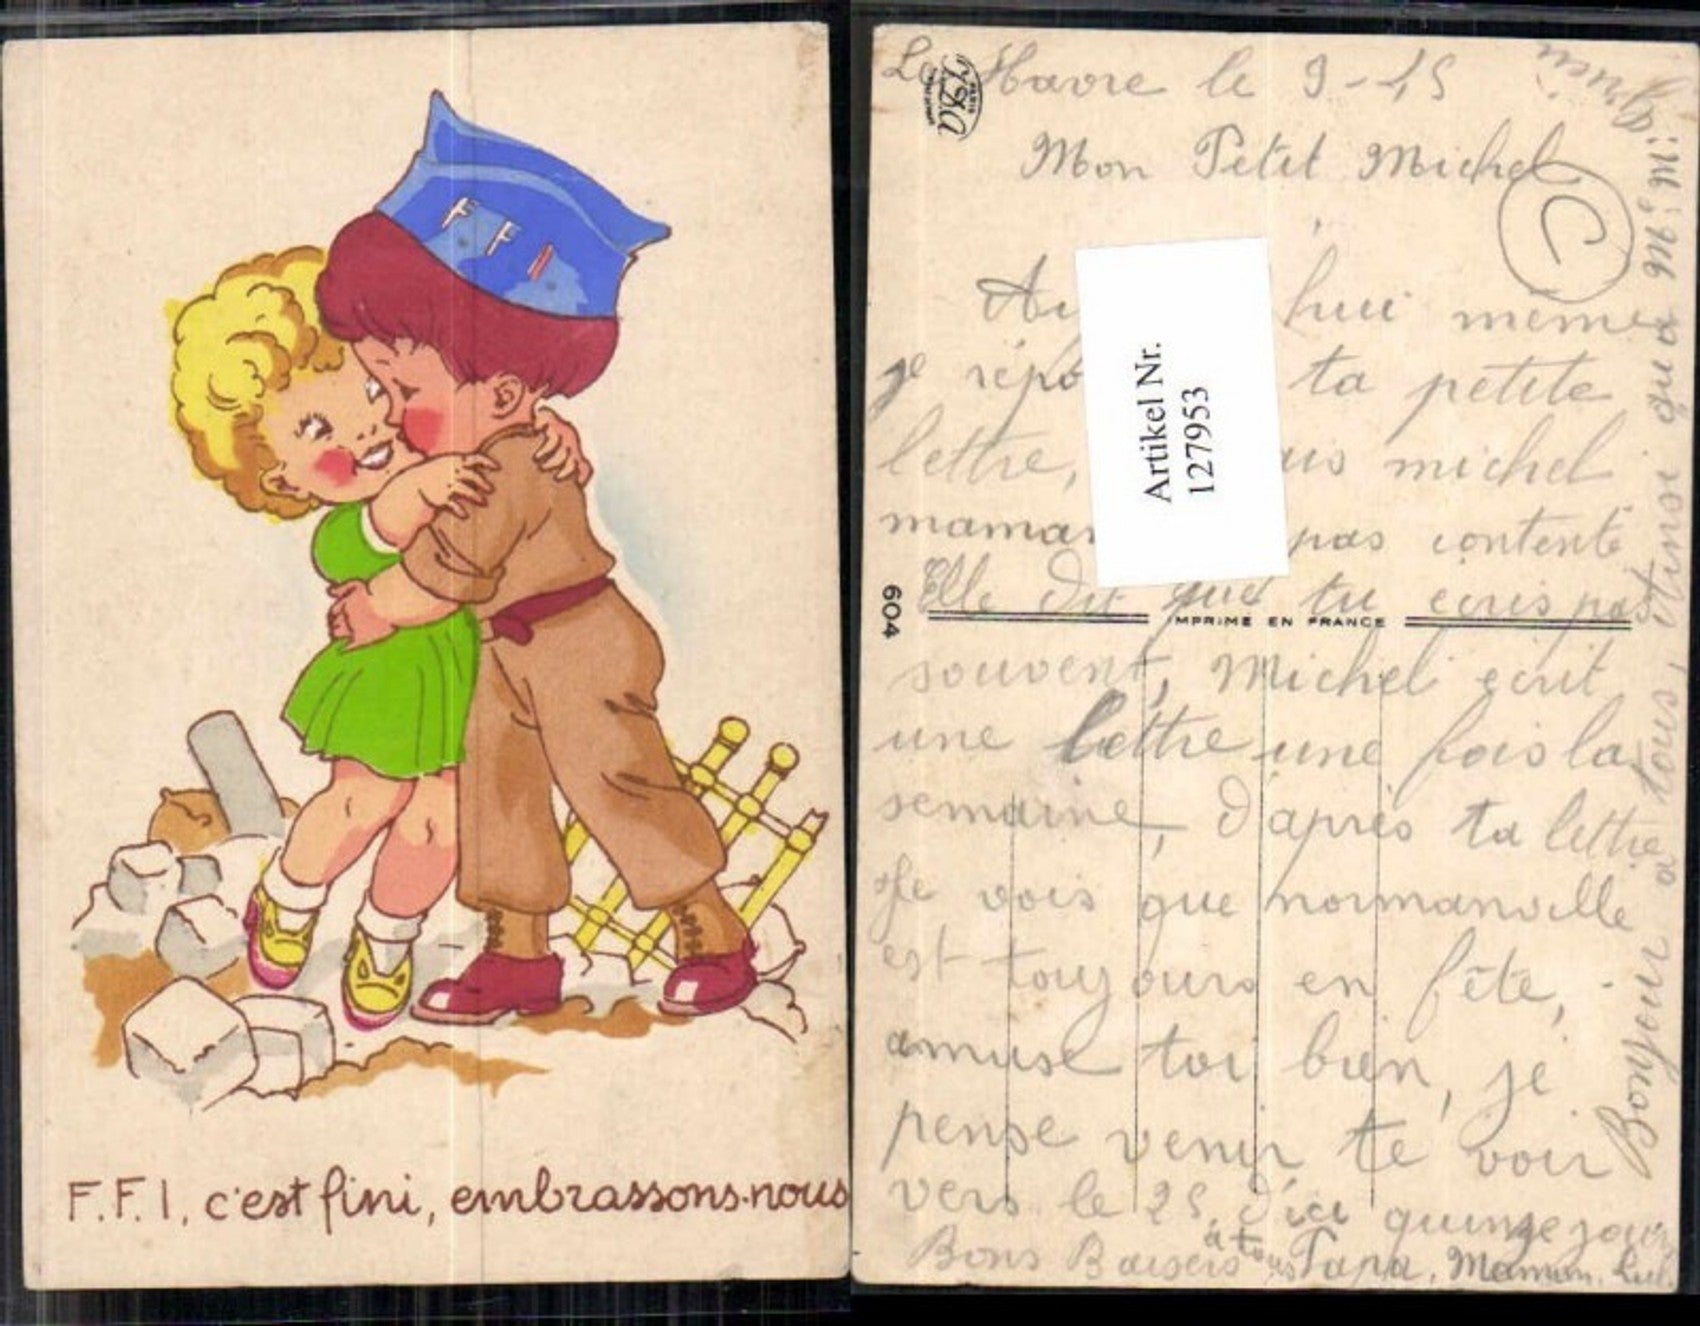 F F I
F.F.I, c'est fini, embrassons-nous
Le Havre le 9-45
Mon Petit Michel
C
hui meme
je répo ta petite
lettre, michel
maman pas contente
Elle dit que tu ecris pas
604
IMPRIME EN FRANCE
souvent, Michel ecrit
une lettre une fois la
semaine, d'après ta lettre
Je vois que normanville
est toujours en fête,
amuse toi bien, je
pense venir te voir
vers le 25, d'ici quinze jour
Bons Baisers à tous Papa, Maman,
Bonjour a tous,
Artikel Nr.
127953